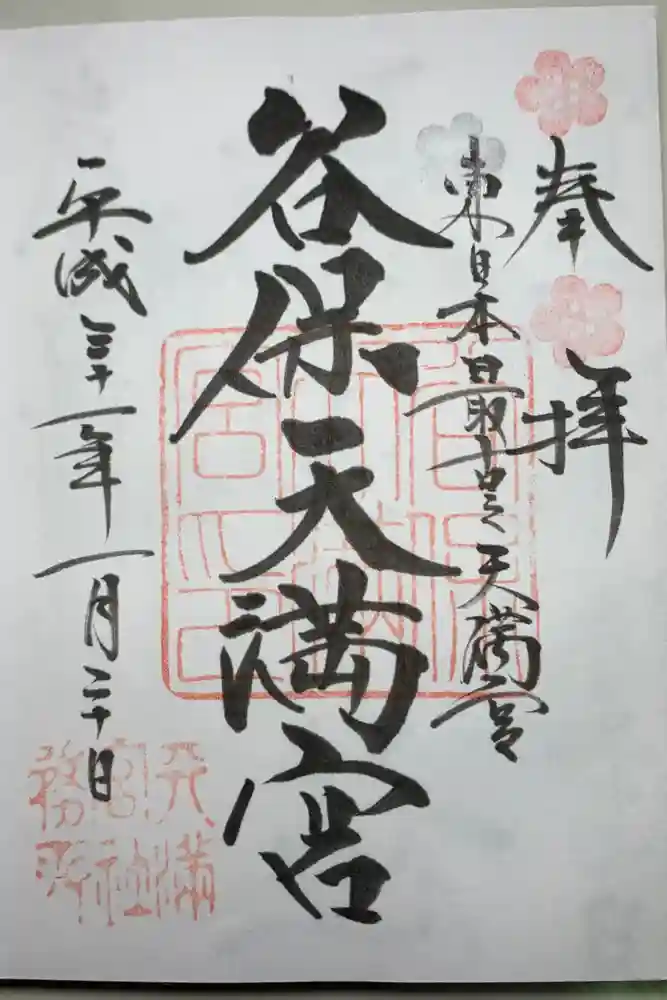 奉拝
東日本最古之天満宮
谷保天満宮
平成三十一年一月二十日
天満宮社務所